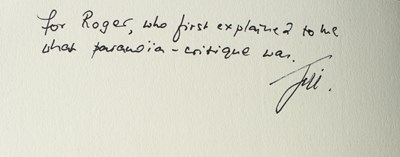 for Roger, who first explained to me
what paranoia-critique was.